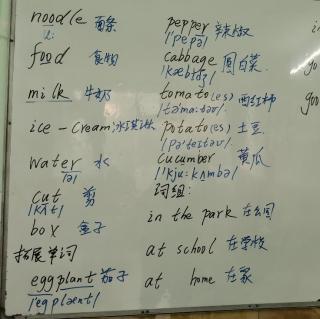 noodle 面条
u:
food 食物
milk 牛奶
ice-cream 冰淇淋
water 水
/ə/
cut 剪
/kʌt/
box 盒子
拓展单词
eggplant 茄子
/'egplænt/
pepper 辣椒
/'pepə/
cabbage 圆白菜
/'kæbɪdʒ/
tomato(es) 西红柿
/tə'ma:təʊ/
potato(es) 土豆
/pə'teɪtəʊ/
cucumber 黄瓜
/'kju:kʌmbə/
词组:
in the park 在公园
at school 在学校
at home 在家
go